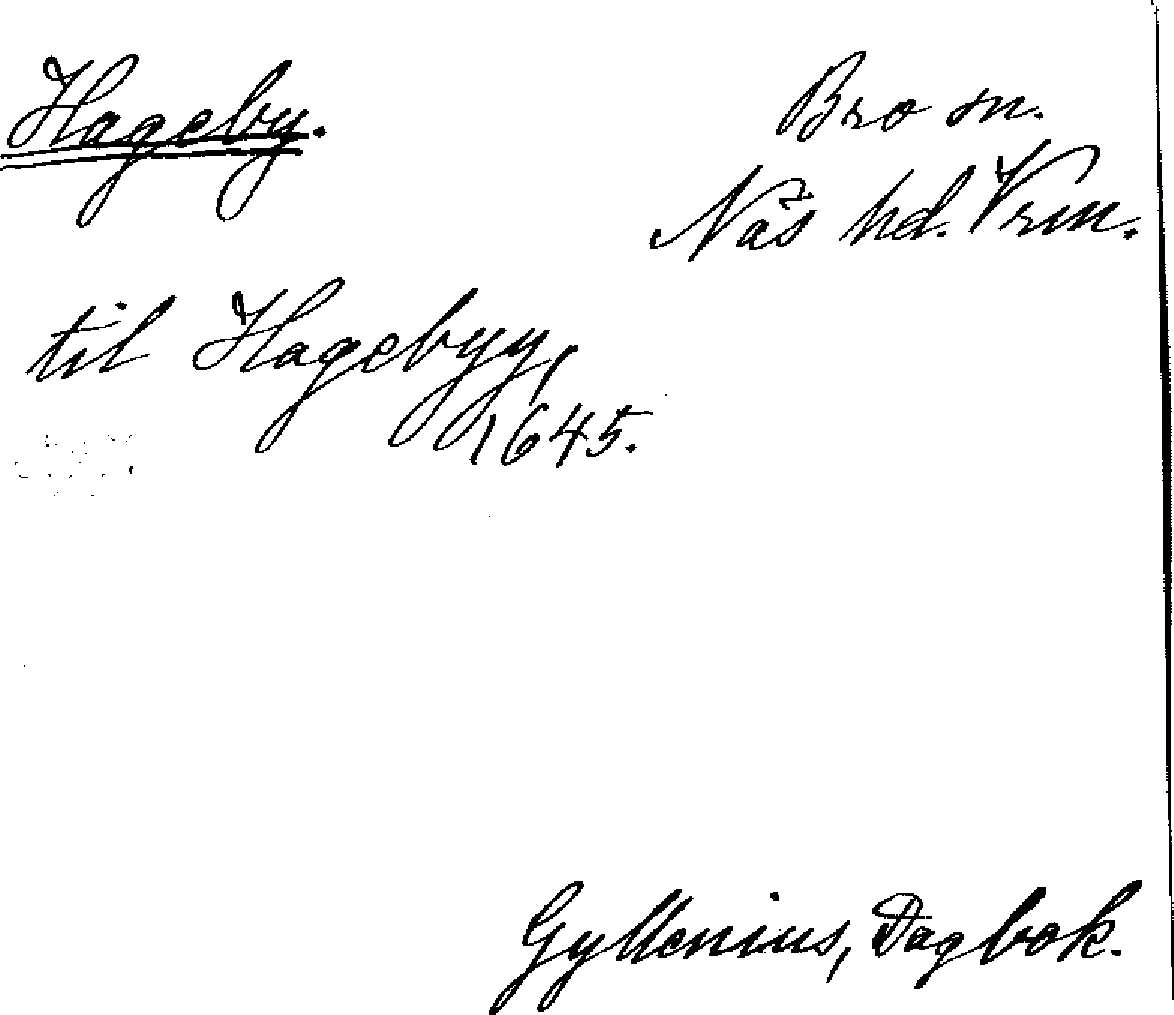 Hageby.
Bro sn.
Näs hd. Vrm.
til Hagebyy,
1645.
Gyllenius, Dagbok.